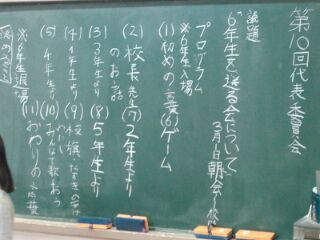 第10回代表委員会
議題
"6年生を送る会について"
3月1日朝会〜
プログラム
※6年生入場
(1)初めの言葉
(2)校長先生のお話
(3)3年生より
(4)1年生より
(5)4年生より
(6)ゲーム
(7)2年生より
(8)5年生より
(9)校旗
(10)みんなで歌おう
(11)おわりの言葉
※6年生退場